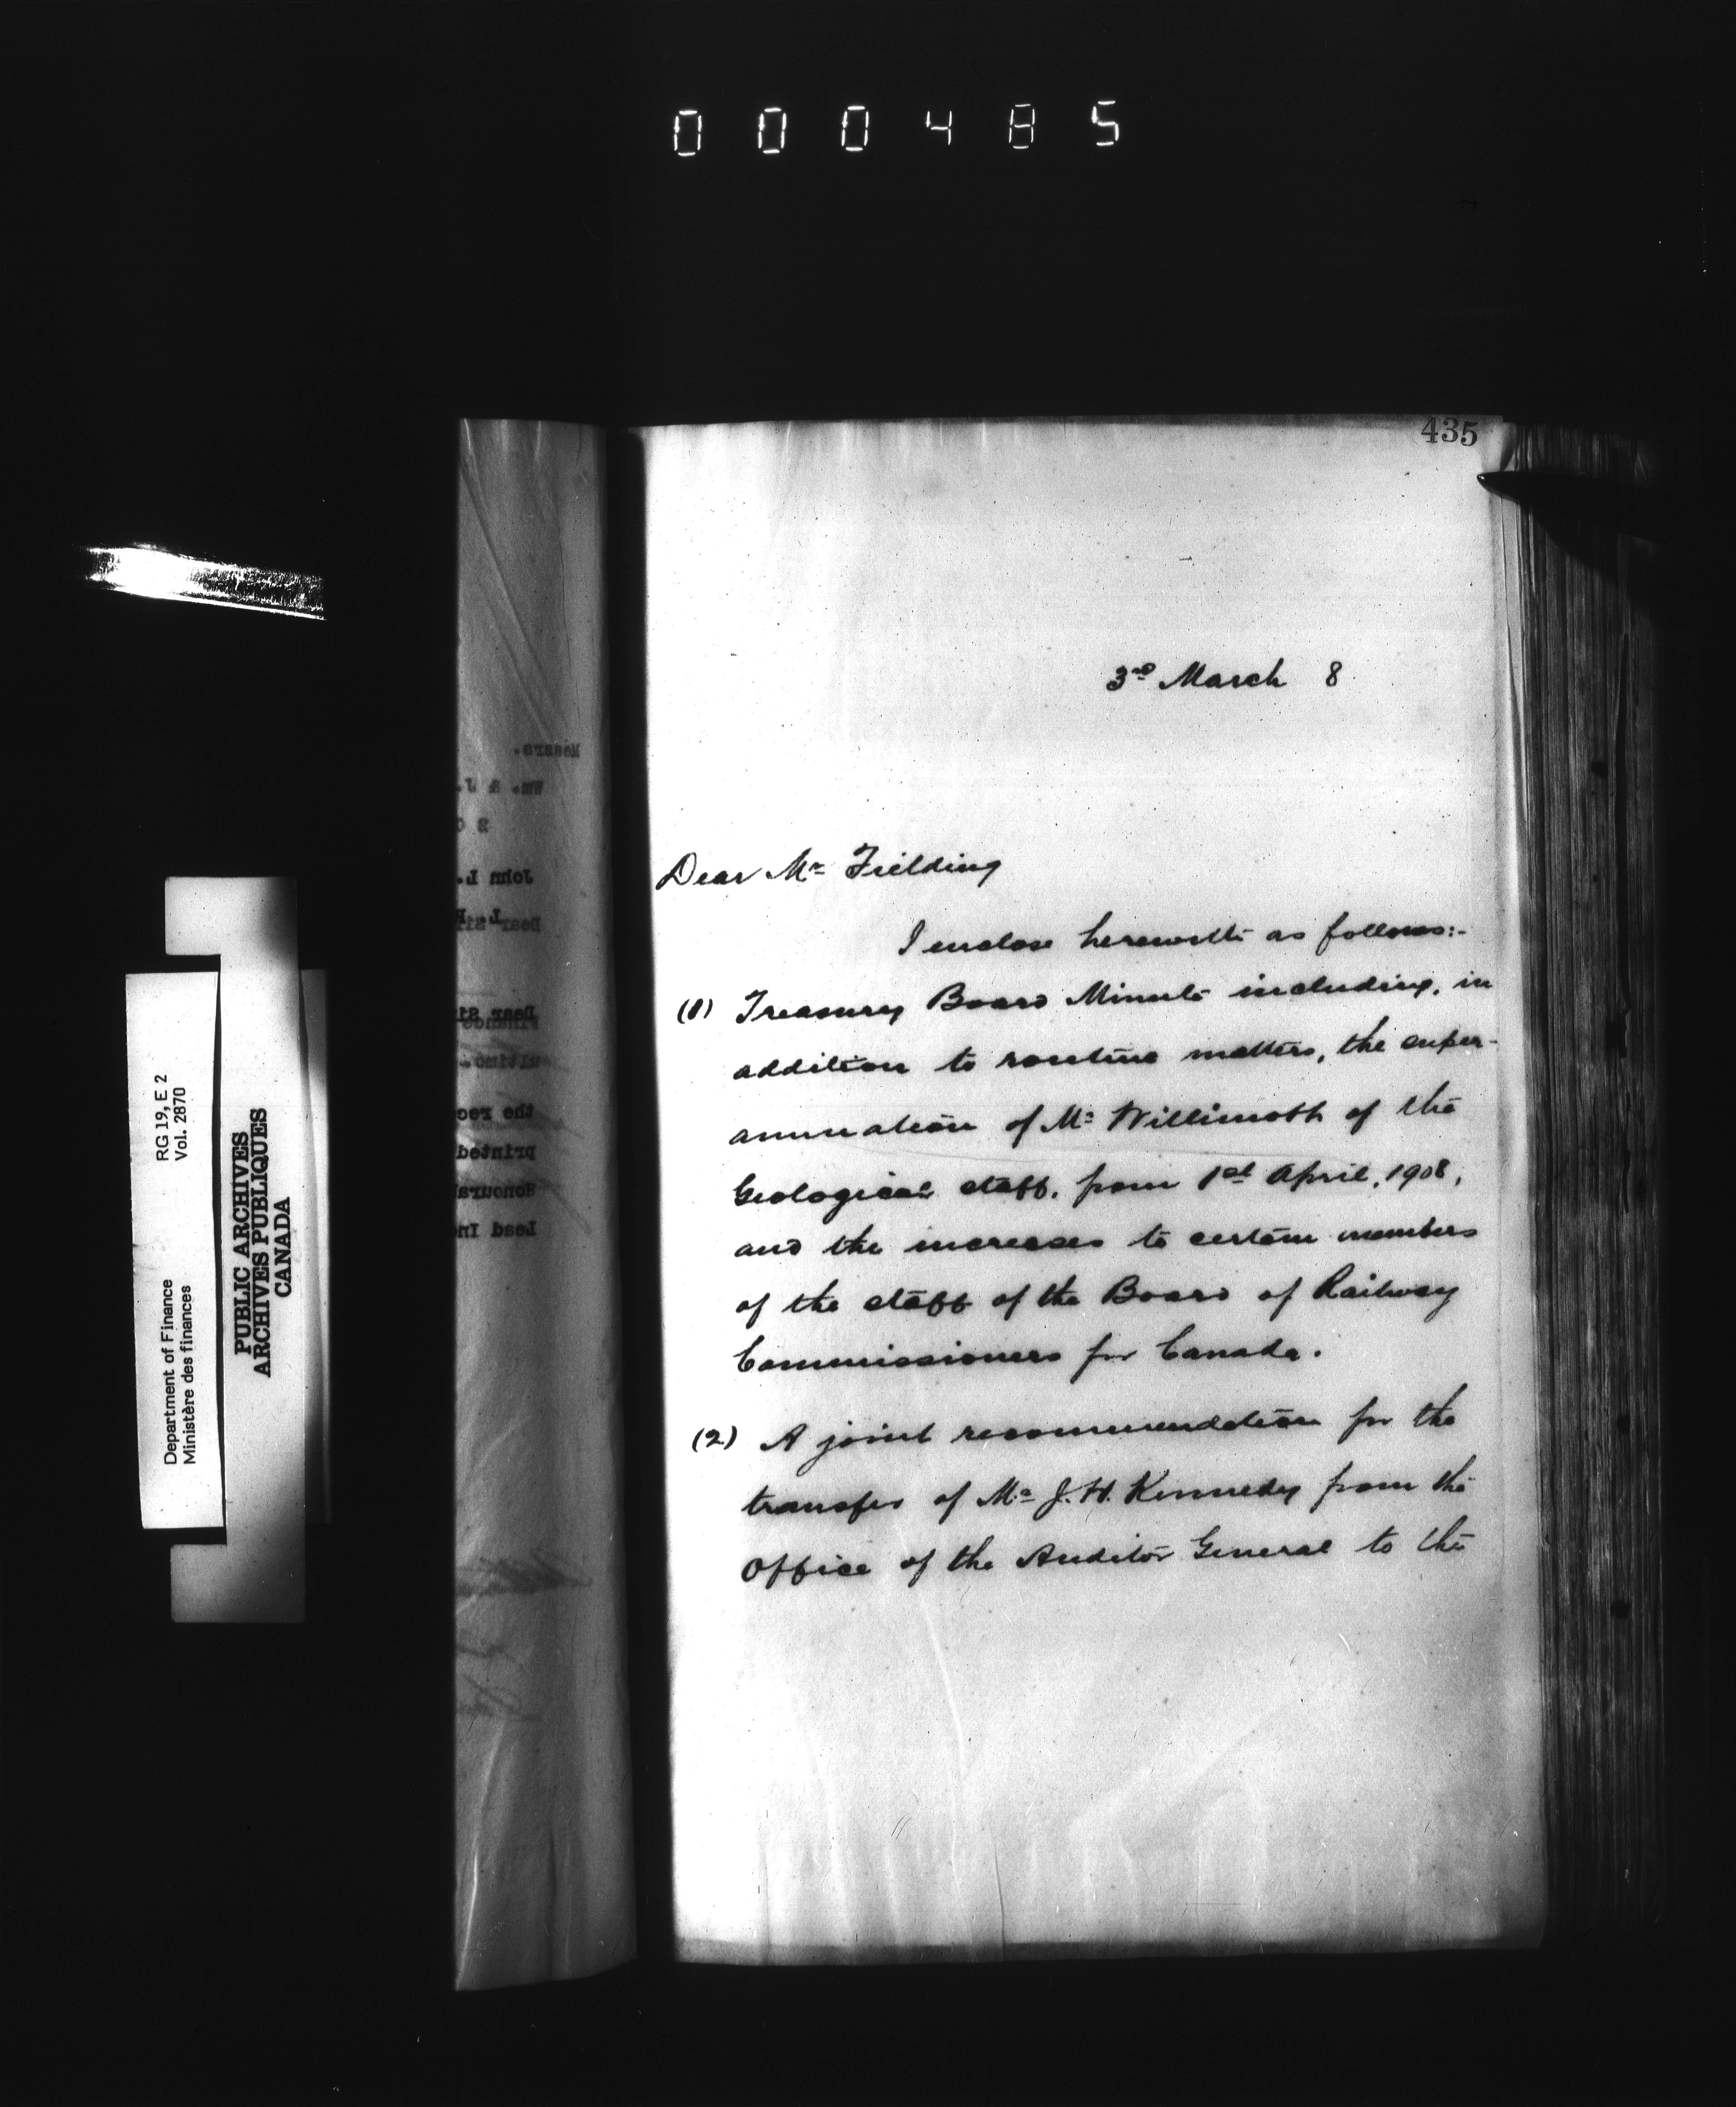 000485
435
3rd March 8
Dear Mr Fielding
I enclose herewith as follows:-
(1) Treasury Board Minute including, in
addition to routine matters, the super-
annuation of Mr Willimott of the
Geological staff, from 1st April, 1908,
and the increases to certain members
of the staff of the Board of Railway
Commissioners for Canada.
(2) A joint recommendation for the
transfer of Mr J. H. Kennedy from the
Office of the Auditor General to the
Department of Finance
Ministère des finances
RG 19, E 2
Vol. 2870
PUBLIC ARCHIVES
ARCHIVES PUBLIQUES
CANADA
Messrs.
Wm. & J.
John L.
Dear Sir
ultimo.
the rec
printed
Honoura
Lead In